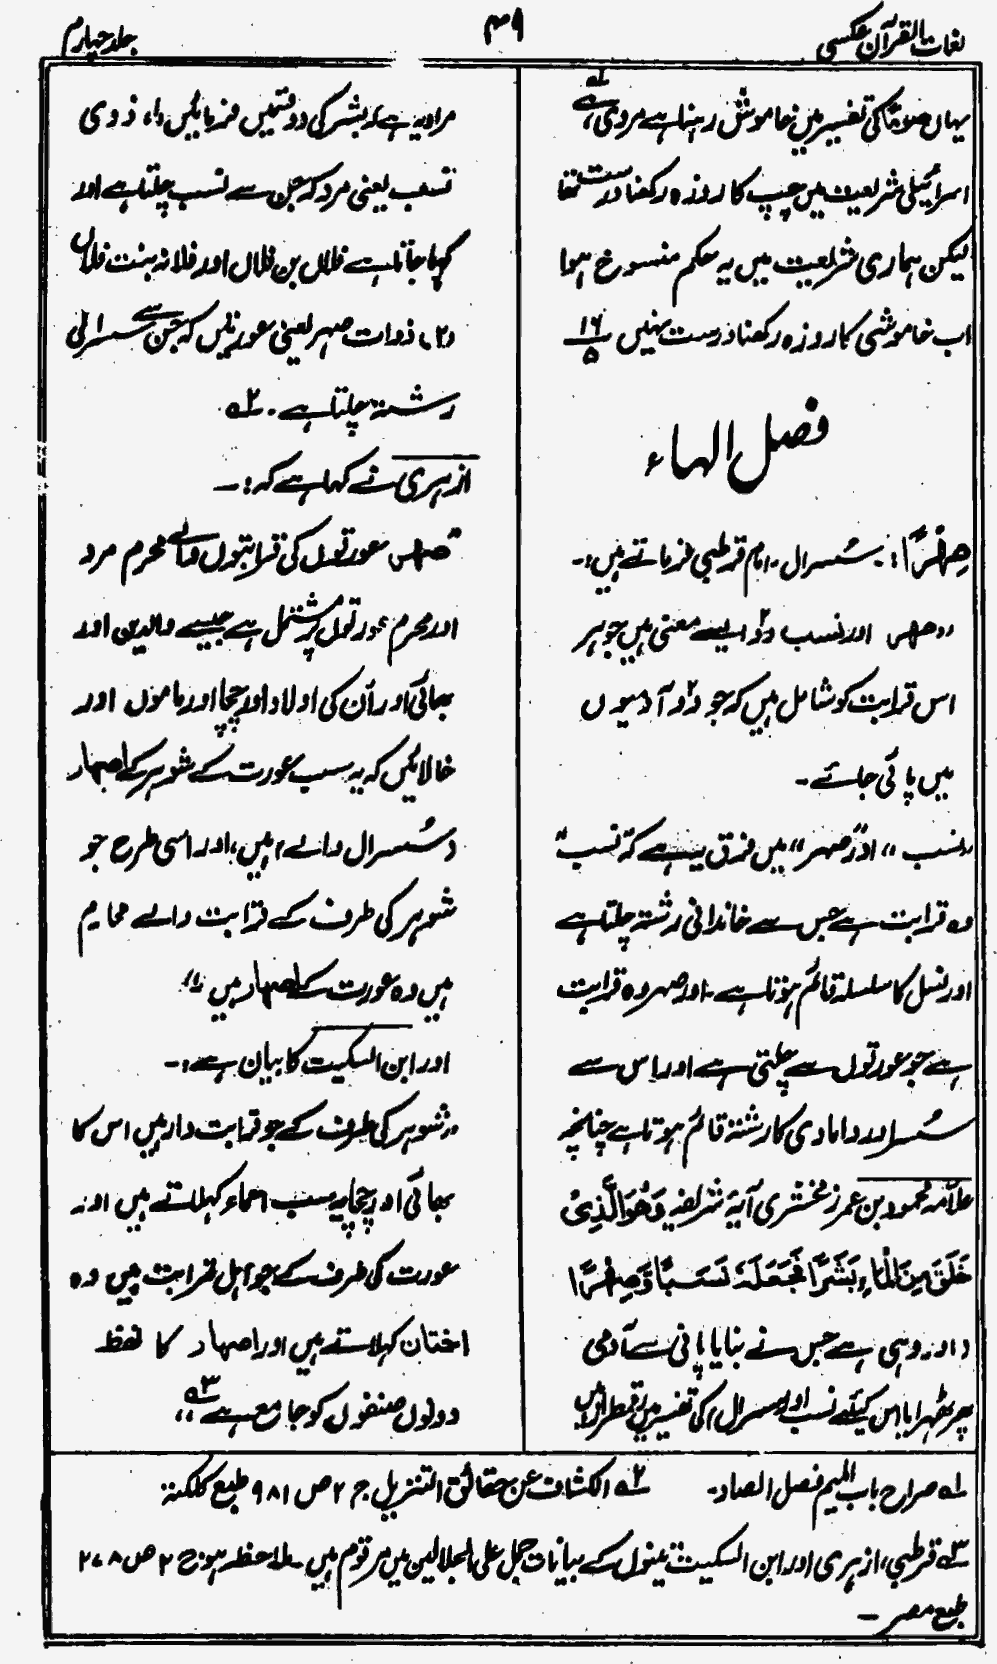 لغات القرآن عکسی
۴۹
جلد چہارم
یہاں صوتًا کی تفسیر میں خاموش رہنا ہے مروی ہے، لہ
اسرائیلی شریعت میں چپ کا روزہ رکھنا درست تھا
لیکن ہماری شریعت میں یہ حکم منسوخ ہوا
اب خاموشی کا روزہ رکھنا درست نہیں ۱۶/۵
فصل الہاء
صِھْرًا :۔ سُسرال۔ امام قرطبی فرماتے ہیں:۔
"صھر اور نسب دو ایسے معنی ہیں جو ہر
اس قرابت کو شامل ہیں کہ جو دو آدمیوں
میں پائی جائے۔
"نسب" اور "صہر" میں فرق یہ ہے کہ نسب"
وہ قرابت ہے جس سے خاندانی رشتہ چلتا ہے
اور نسل کا سلسلہ قائم ہوتا ہے۔ اور صہر وہ قرابت
ہے جو عورتوں سے چلتی ہے اور اِس سے
سُسر اور دامادی کا رشتہ قائم ہوتا ہے چنانچہ
علامہ محمود بن عمر زمخشری آیۂ شریفہ وَھُوَ الَّذِیْ
خَلَقَ مِنَ الْمَاءِ بَشَرًا فَجَعَلَهٗ نَسَبًا وَّصِهْرًا
(اور وہی ہے جس نے بنایا پانی سے آدمی
پھر ٹھہرایا اس کیلئے نسب اور سسرال) کی تفسیر میں رقمطراز ہیں
مراد یہ ہے کہ بشر کی دو قسمیں فرمائیں (۱) ذوی
نسب یعنی مرد کہ جن سے نسب چلتا ہے اور
کہا جاتا ہے فلاں بن فلاں اور فلانہ بنت فلاں
(۲) ذوات صہر یعنی عورتیں کہ جن سے سسرالی
رشتہ چلتا ہے۔ ۲ہ
ازہری نے کہا ہے کہ:۔
"صھر عورتوں کی قرابتوں والے محرم مرد
اور محرم عورتوں پر مشتمل ہے جیسے والدین اور
بھائی اور اُن کی اولاد اور چچا اور ماموں اور
خالائیں کہ یہ سب عورت کے شوہر کے اصہار
(سُسرال والے) ہیں، اور اسی طرح جو
شوہر کی طرف کے قرابت والے محارم
ہیں وہ عورت کے اصہار ہیں"
اور ابن السکیت کا بیان ہے:۔
"شوہر کی طرف کے جو قرابت دار ہیں اس کا
بھائی اور چچا یہ سب احماء کہلاتے ہیں اور
عورت کی طرف کے جو اہل قرابت ہیں وہ
اختان کہلاتے ہیں اور اصہار کا لفظ
دونوں صنفوں کو جامع ہے ۳ہ"
۱ہ صراح باب المیم فصل الصاد۔ ۲ہ الکشاف عن حقائق التنزیل ج ۲ ص ۹۸۱ طبع کلکتہ
۳ہ قرطبی، ازہری اور ابن السکیت تینوں کے بیانات جمل علی الجلالین میں مرقوم ہیں۔ ملاحظہ ہو ج ۲ ص ۲۷۸
طبع مصر۔